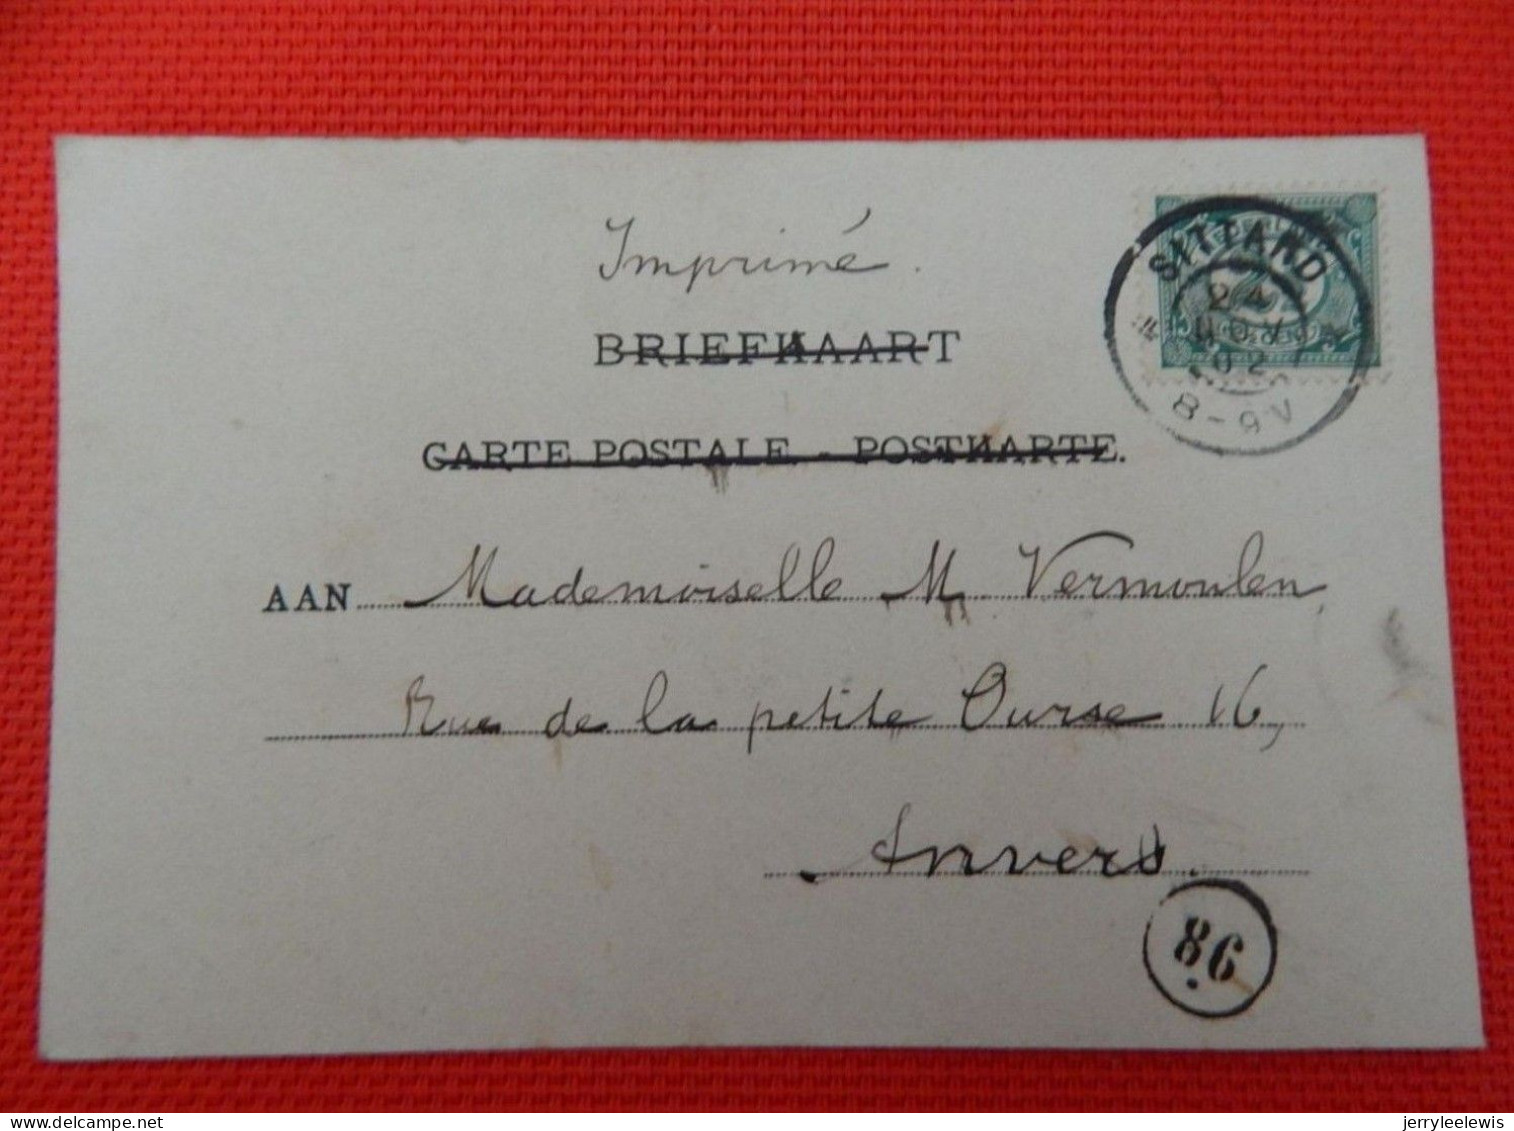 Imprimé.
BRIEFKAART
CARTE POSTALE. - POSTKARTE.
AAN Mademoiselle M. Vermoulen,
Rue de la petite Ourse 16,
Anvers.
SITTARD
24
NOV
02
8-9V
86
jerryleelewis